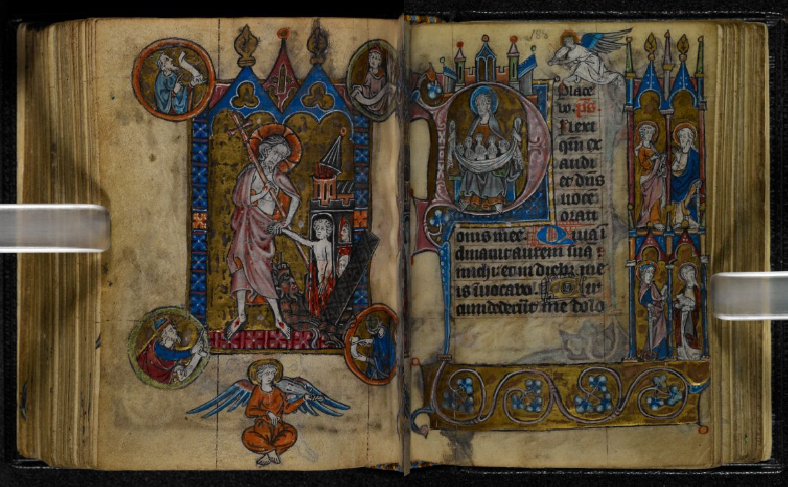 Place
bo. ps
Dilexi
qm ex
audi
et dns
uoce
orati
onis mee Quia i
clinauit aurem sua
michi et in dieb; me
is inuocabo.
cumdederut me dolo